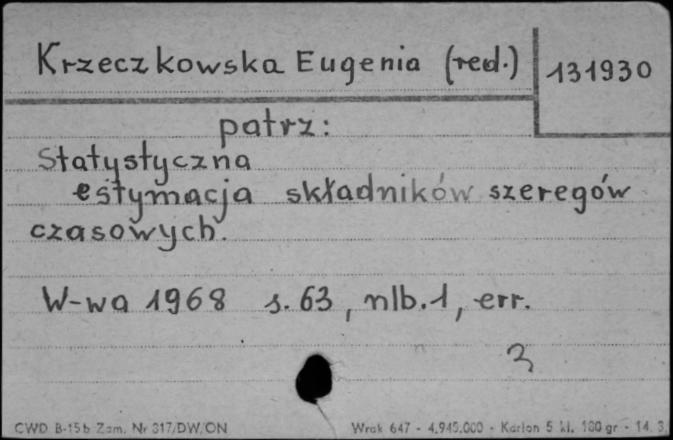 Krzeczkowska Eugenia (red.)
131930
patrz:
Statystyczna
estymacja składników szeregów
czasowych.
W-wa 1968 s. 63, nlb. 1, err.
3
CWD B-15b Zam. Nr 317/DW/ON
Wrak 647 - 4.945.000 - Karton 5 kl. 180 gr - 14. 3.